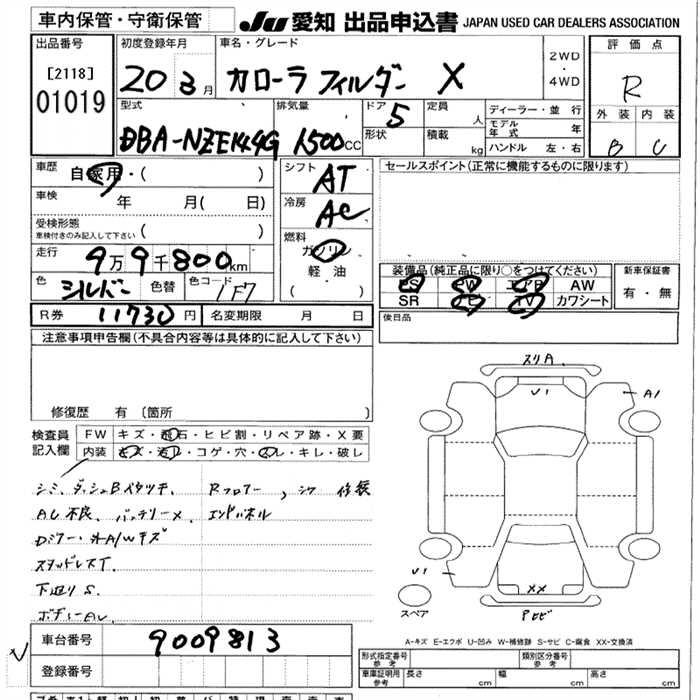 車内保管・守衛保管
Ju 愛知 出品申込書 JAPAN USED CAR DEALERS ASSOCIATION
出品番号
[2118]
01019
初度登録年月
20 3月
車名・グレード
カローラ フィルダー X
2WD
・
4WD
評価点
R
外装 内装
B C
型式
DBA-NZE144G
排気量
1500cc
ドア 5
形状
定員 人
積載 kg
ディーラー・並行
モデル年式 年
ハンドル 左・右
車歴 自家用・( )
車検 年 月( 日)
受検形態
車検付きのみ記入して下さい ( )
走行 9万9千800km
色 シルバー 色替 色コード 1F7
シフト AT
冷房 AC
燃料
ガソリン
軽油
( )
セールスポイント(正常に機能するものに限ります)
装備品(純正品に限り○をつけてください)
PS PW エアB AW
SR ナビ TV カワシート
新車保証書
有・無
後日品
R券 11730円 名変期限 月 日
注意事項申告欄(不具合内容等は具体的に記入して下さい)
修復歴 有(箇所 )
検査員
記入欄
FW キズ・飛石・ヒビ割・リペア跡・X要
内装 キズ・汚レ・コゲ・穴・スレ・キレ・破レ
シミ、ダッシュB
Rフロアー
修復
AC不良、バッテリーX、エンドパネル
外A/Wキズ
スタッドレスT.
下廻りS.
車台番号 9009813
登録番号
スリA
V1
A1
V1
XX
スペア
A-キズ E-エクボ U-凹み W-補修跡 S-サビ C-腐食 XX-交換済
形式指定番号
参考
類別区分番号
参考
車庫証明用
参考
長さ 幅 高さ